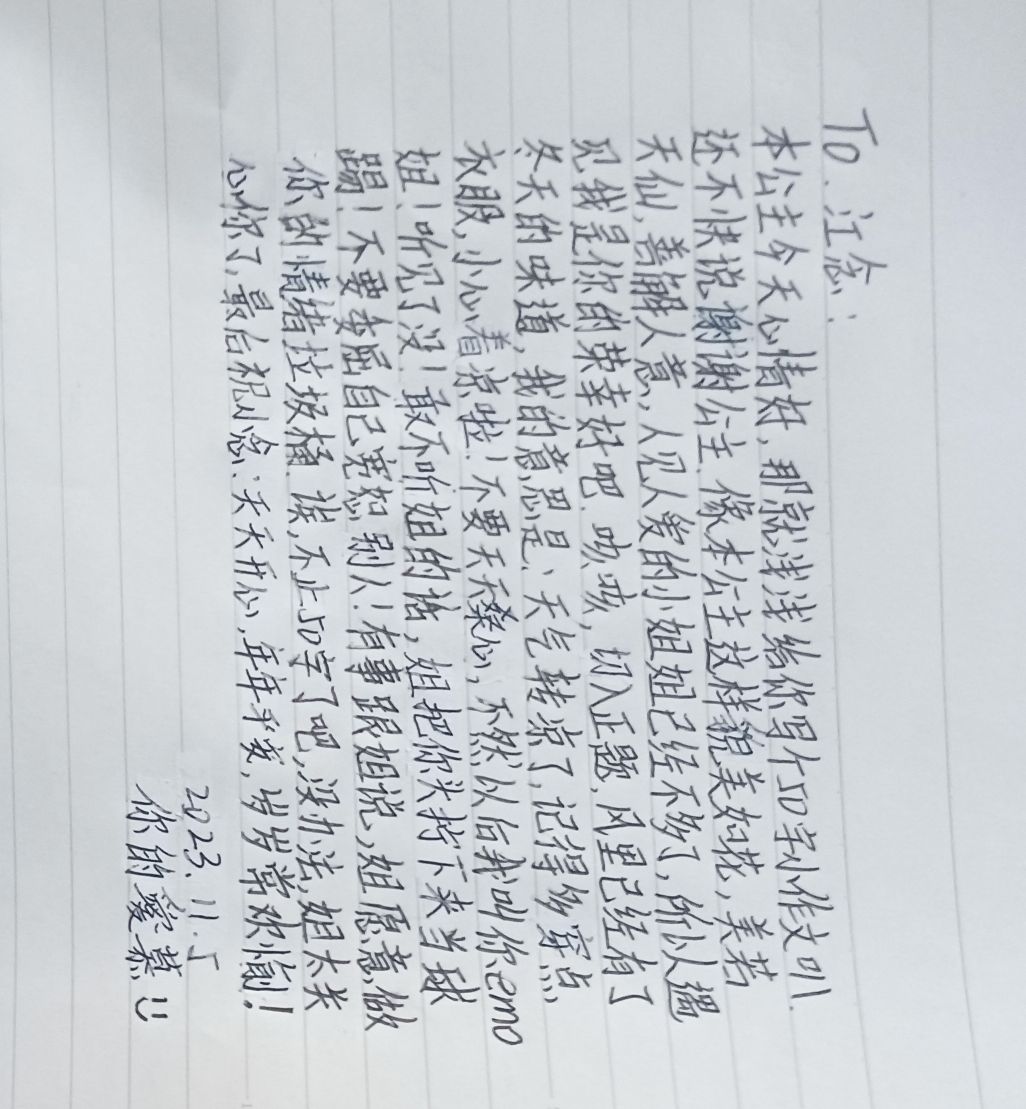 To.江念：
本公主今天心情好，那就浅浅给你写个50字小作文叭.
还不快说谢谢公主.像本公主这样貌美如花，美若
天仙，善解人意，人见人爱的小姐姐已经不多了，所以遇
见我是你的荣幸好吧.咳咳，切入正题，风里已经有了
冬天的味道，我的意思是：天气转凉了，记得多穿点
衣服，小心着凉啦！不要天天桑心，不然以后我叫你emo
姐！听见了没！敢不听姐的话，姐把你头拧下来当球
踢！不要委屈自己宽恕别人！有事跟姐说，姐愿意做
你的情绪垃圾桶.诶，不止50字了吧，没办法，姐太关
心你了，最后祝小念：天天开心，年年平安，岁岁常欢愉！
2023.11.5
你的蓃慕